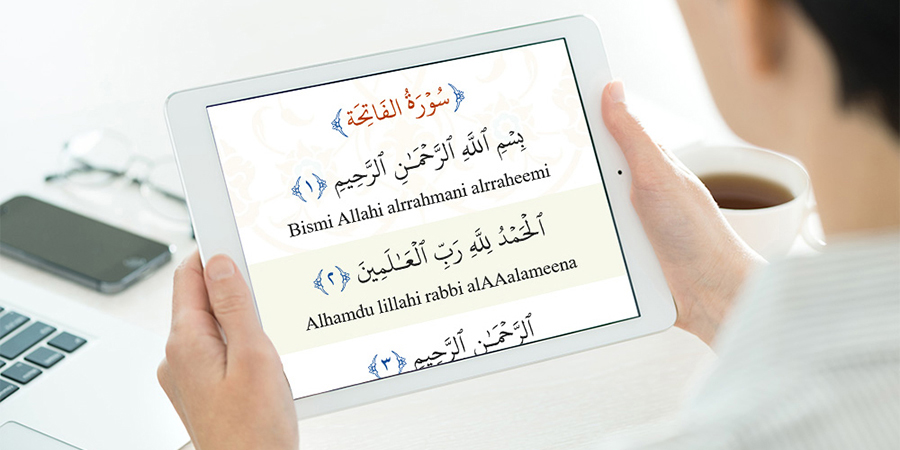 ﴿سُوْرَةُ الفَاتِحَة﴾
بِسْمِ ٱللَّهِ ٱلرَّحْمَـٰنِ ٱلرَّحِيمِ ﴿١﴾
Bismi Allahi alrrahmani alrraheemi
ٱلْحَمْدُ لِلَّهِ رَبِّ ٱلْعَـٰلَمِينَ ﴿٢﴾
Alhamdu lillahi rabbi alAAalameena
ٱلرَّحْمَـٰنِ ٱلرَّحِيمِ ﴿٣﴾